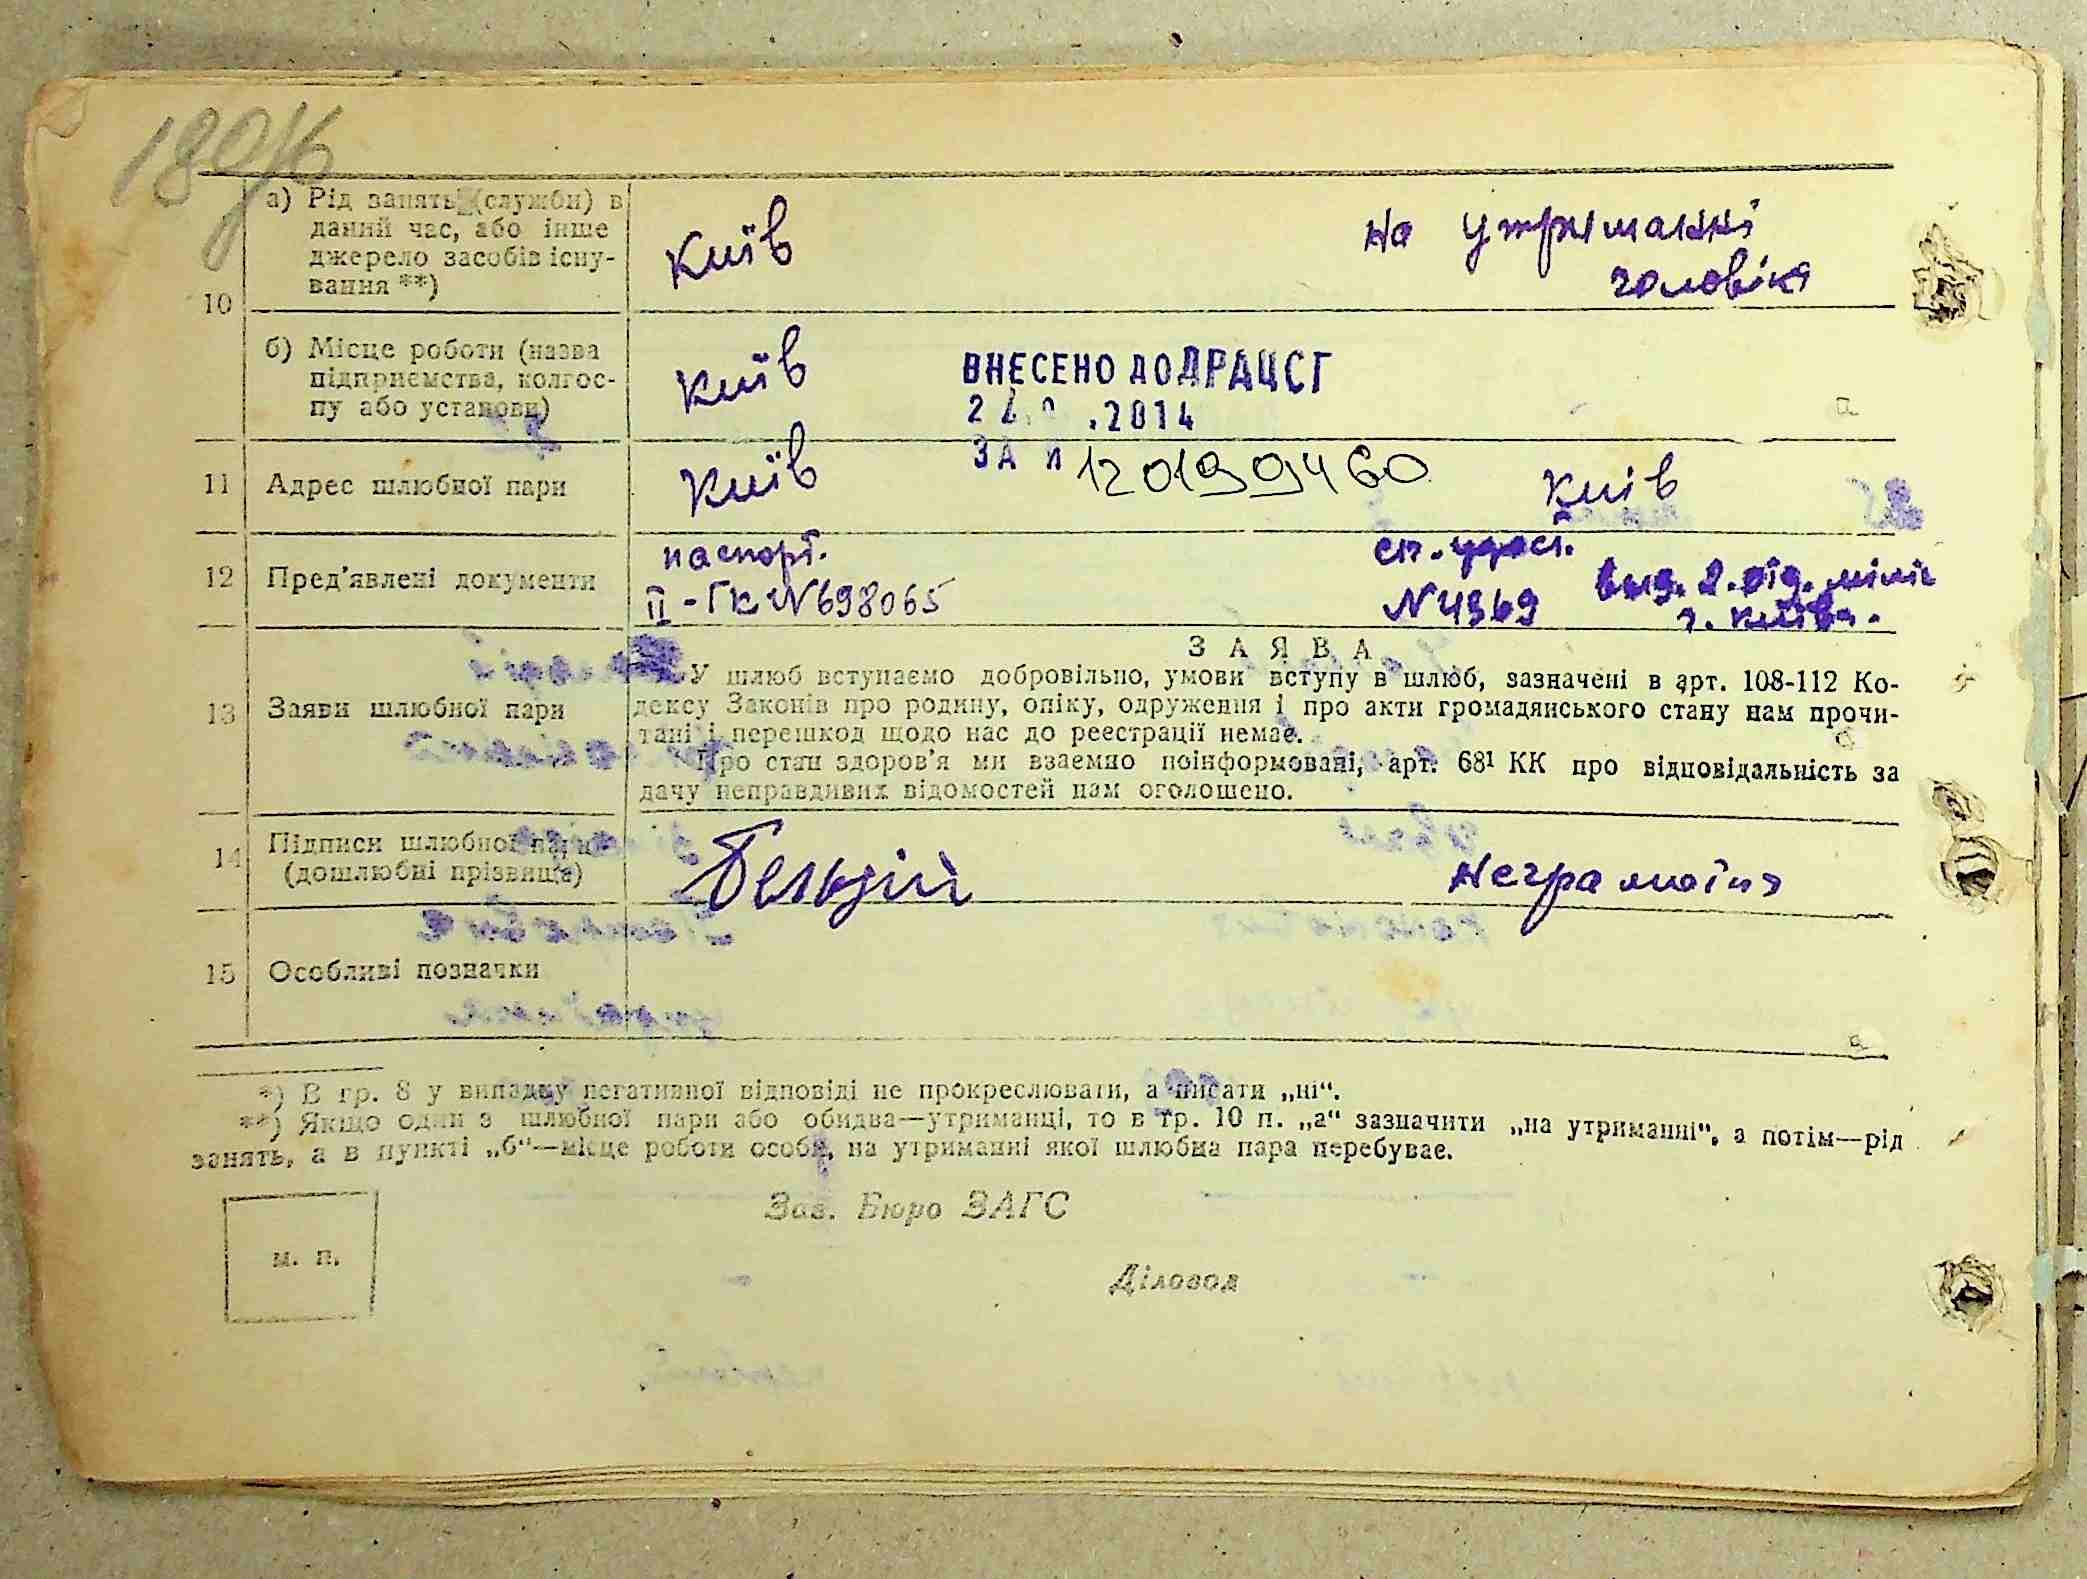 189/6
10
а) Рід занять (служби) в
даний час, або інше
джерело засобів існу-
вання **)
Київ
на утриманні
чоловіка
б) Місце роботи (назва
підприємства, колгос-
пу або установи)
Київ
ВНЕСЕНО ДО ДРАЦСГ
.2014
11
Адрес шлюбної пари
Київ
ЗА № 1201999460
Київ
12
Пред'явлені документи
паспорт.
II-ГК № 698065
сп. удост.
№ 4369
вид. 2. від. міліц
г. Київа.
13
Заяви шлюбної пари
ЗАЯВА
У шлюб вступаємо добровільно, умови вступу в шлюб, зазначені в арт. 108-112 Ко-
дексу Законів про родину, опіку, одруження і про акти громадянського стану нам прочи-
тані і перешкод щодо нас до реєстрації немає.
Про стан здоров'я ми взаємно поінформовані, арт. 68¹ КК про відповідальність за
дачу неправдивих відомостей нам оголошено.
14
Підписи шлюбної пари
(дошлюбні прізвища)
неграмотна
15
Особливі позначки
*) В гр. 8 у випадку негативної відповіді не прокреслювати, а писати „ні“.
**) Якщо один з шлюбної пари або обидва—утриманці, то в гр. 10 п. „а“ зазначити „на утриманні“, а потім—рід
занять, а в пункті „б“—місце роботи особи, на утриманні якої шлюбна пара перебуває.
Зав. Бюро ЗАГС
м. п.
Діловод